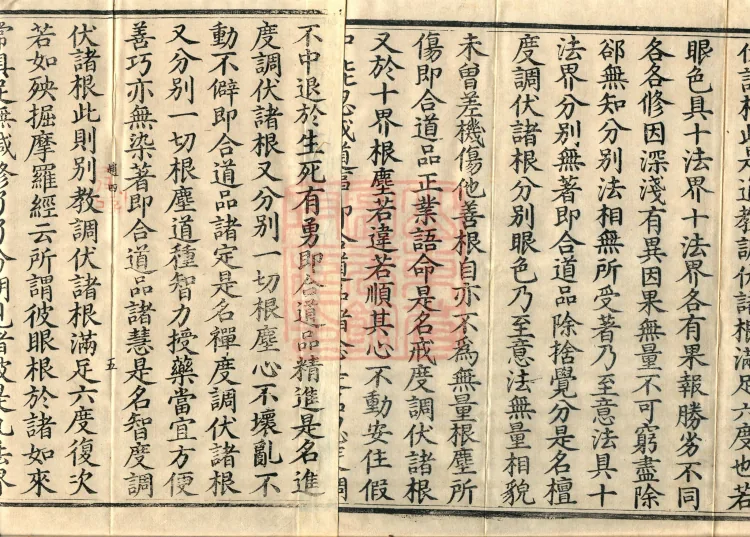 眼色具十法界十法界各有果報勝劣不同
各各修因深淺有異因果無量不可窮盡除
郤無知分別法相無所受著乃至意法具十
法界分別無著即合道品除捨覺分是名檀
度調伏諸根分別眼色乃至意法無量相貌
未曾差機傷他善根自亦不為無量根塵所
傷即合道品正業語命是名戒度調伏諸根
又於十界根塵若違若順其心不動安住假
不中退於生死有勇即合道品精進是名進
度調伏諸根又分別一切根塵心不壞亂不
動不僻即合道品諸定是名禪度調伏諸根
又分別一切根塵道種智力授藥當宜方便
善巧亦無染著即合道品諸慧是名智度調
趙四 五
伏諸根此則別教調伏諸根滿足六度復次
若如殃掘摩羅經云所謂彼眼根於諸如來